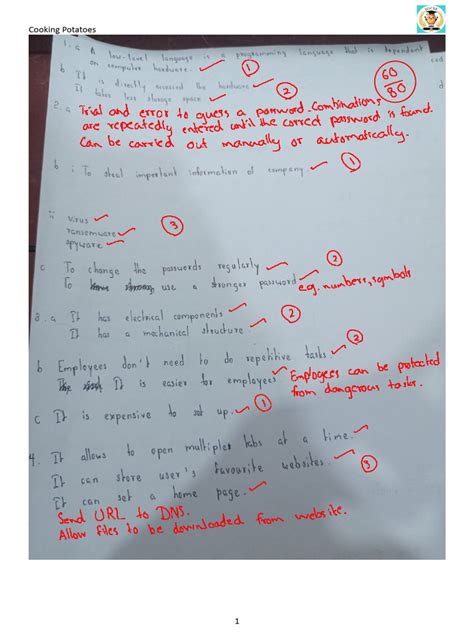 Cooking Potatoes
1. a A low-level language is a programming language that is dependent
on computer hardware.
①
b It is directly accessed the hardware
It takes less storage space
②
60
80
2.a Trial and error to guess a password. Combinations
are repeatedly entered until the correct password is found.
Can be carried out manually or automatically.
b i To steal important information of company.
①
ii virus
ransomware
spyware
③
c To change the passwords regularly
②
To use a stronger password e.g. numbers, symbols
3. a It has electrical components
It has a mechanical structure.
②
b Employees don't need to do repetitive tasks
②
It is easier for employees Employees can be protected
from dangerous tasks.
c It is expensive to set up.
①
4. It allows to open multiple tabs at a time.
It can store user's favourite websites.
③
It can set a home page.
Send URL to DNS.
Allow files to be downloaded from website.
1